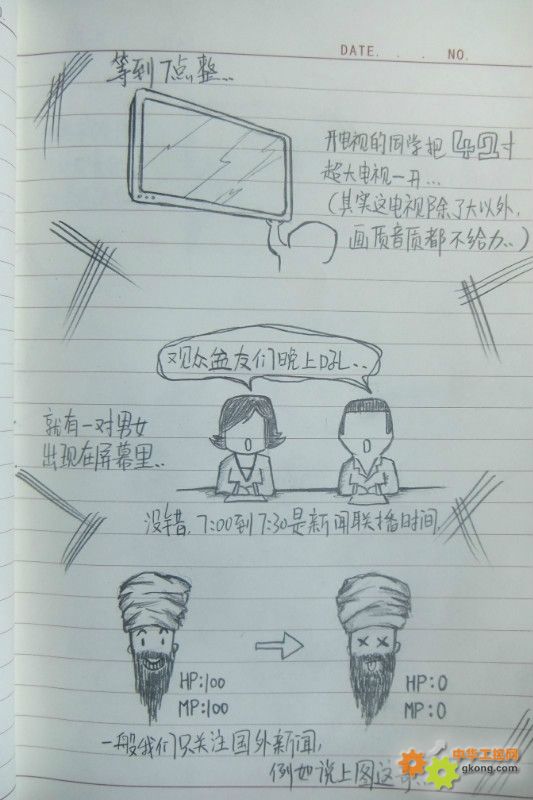 DATE. . . NO.
等到7点整...
开电视的同学把42寸
超大电视一开...
(其实这电视除了大以外,
画质音质都不给力..)
观众盆友们晚上好...
就有一对男女
出现在屏幕里..
没错,7:00到7:30是新闻联播时间,
HP:100
MP:100
HP:0
MP:0
一般我们只关注国外新闻,
例如说上图这
中华工控网
gkong.com